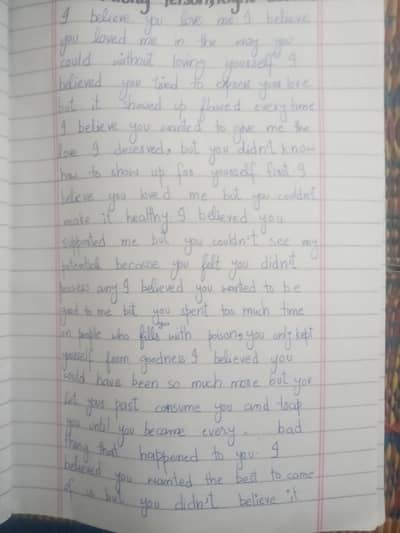 I believe you love me I believe
you loved me in the way you
could without loving yourself I
believed you tried to express your love
but it showed up flawed everytime
I believe you wanted to give me the
love I deserved, but you didn't know
how to show up for yourself first I
believe you loved me but you couldn't
make it healthy I believed you
supported me but you couldn't see my
potential because you felt you didn't
possess any I believed you wanted to be
good to me bit you spent too much time
in people who fills you with poison, you only kept
yourself from goodness I believed you
could have been so much more but you
let your past consume you and
you until you became every bad
thing that happened to you. I
believed you wanted the best to come
of us but you didn't believe it